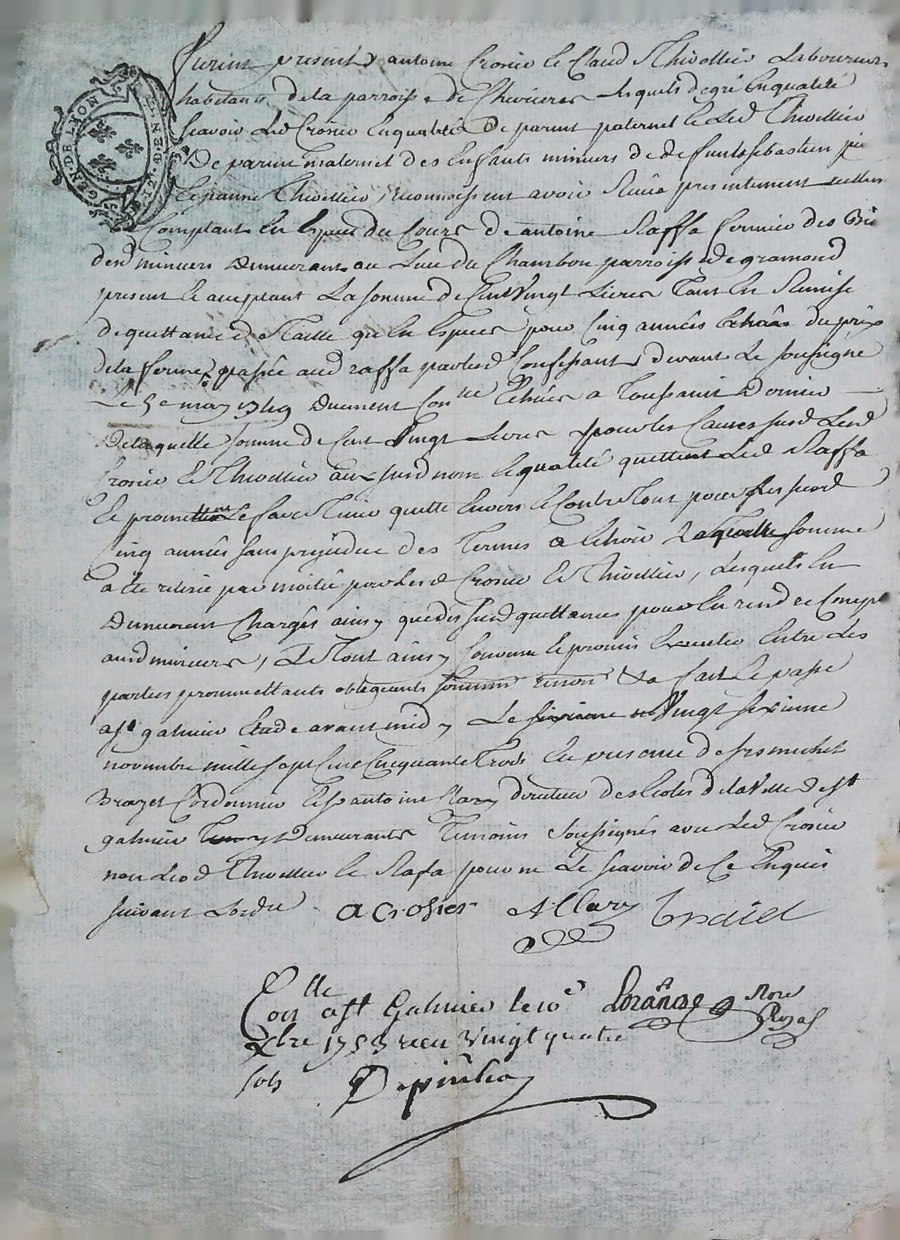 GEN. DE LYON
furent presents antoine Crosier et Claud Thivollier Laboureurs
habitants de la parroisse de Chevrieres lesquels de gré En qualité
scavoir Led Crosier En qualité De parent paternel et Led Thivollier
De parent maternel des Enfants mineurs de defunt sebastien
et jeanne Thivollier, reconnoissent avoir Receu presentement
Comptant En Especes du Cours d'antoine Raffa fermier des
desd mineurs Demeurant au Lieu du Chambon parroisse de gramond
present et aceptant La somme de Cent Vingt Livres Tant En Remise
de quittance de Taille qu'En Especes pour Cinq années Echues du prix
de la ferme passée aud raffa par lesd Confessants devant Le soussigné
Le 5e may 1749 Duement Con^lée Echües a Toussaint Dernier
De laquelle somme de Cent Vingt Livres pour les Causes susd Lesd
Crosier et Thivollier aux susd nom et qualité quittent Led Raffa
et promettent Le faire Tenir quitte Envers et Contre Tout pour les susd
Cinq années sans prejudice des Termes a Echoir Laquelle somme
a été retirée par moitié par Lesd Crosier et Thivollier, Lesquels En
Demeurent Chargés ainsy que des susd quittances pour En rendre Compte
auxd mineurs, Le Tout ainsy Convenu et promis Executer Entre Les
parties promettants obligeants soumis renon &a fait et passé
a st galmier Etude avant midy Le vingt sixieme
novembre mille sept Cent Cinquante Trois En presence de sr michel
Brazet Cordonnier et sr antoine Clary directeur des Ecoles de la Ville de st
galmier y Demeurants Temoins soussignés avec Led Crosier
non Led Thivollier et Rafa pour ne Le scavoir de Ce Enquis
suivant Lordre
a crosier A Clary
Con^lle a st Galmier le 10e
Xbre 1753 receu vingt quatre
sols
not Royal